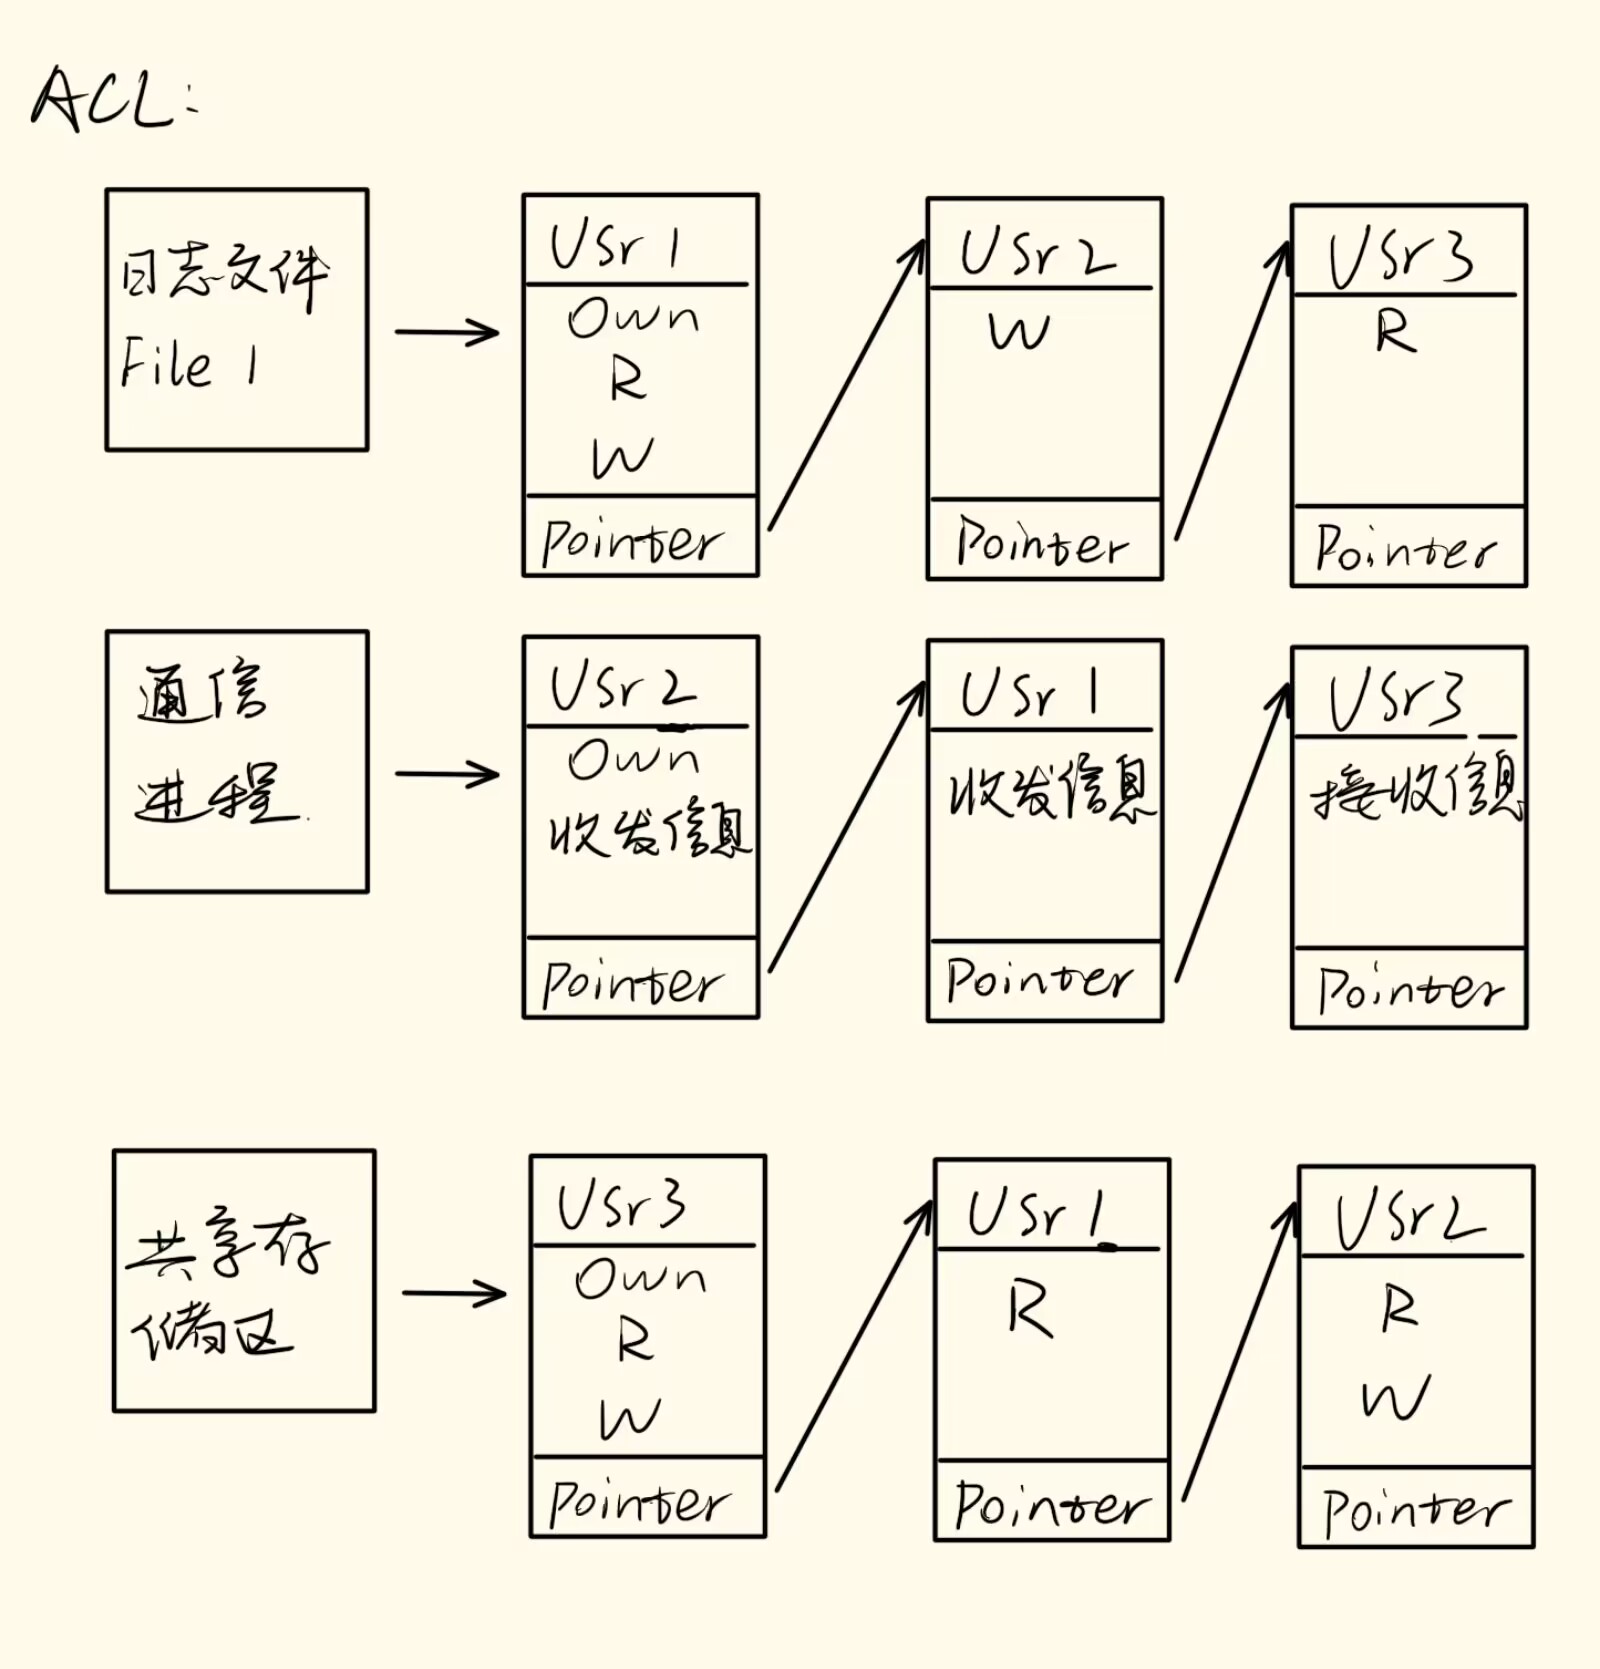 ACL:
日志文件
File 1
Usr 1
Own
R
W
Pointer
Usr 2
W
Pointer
Usr 3
R
Pointer
通信
进程.
Usr 2
Own
收发信息
Pointer
Usr 1
收发信息
Pointer
Usr 3
接收信息
Pointer
共享存
储区
Usr 3
Own
R
W
Pointer
Usr 1
R
Pointer
Usr 2
R
W
Pointer